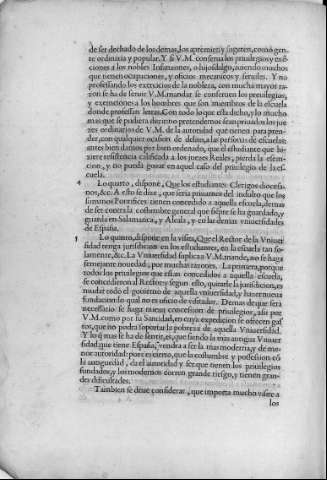 de ser dechado de los demas, los apremien y sugeten, como gente
ordinaria y popular. Y si V.M. conserua los priuilegios y
a los nobles Infanzones, o hijosdalgo, auiendo muchos
que tienen ocupaciones, y oficios mecanicos y seruiles. Y no
professando los exercicios de la nobleza, con mucha mayor razon
se ha de seruir V.M. mandar se conseruen los preuilegios,
y exenciones a los hombres que son miembros de la escuela
donde professan letras. Con todo lo que esta dicho, y lo mucho
mas que se pudiera dezir no pretendemos sean priuados los juezes
ordinarios de V.M. de la autoridad que tienen para prender,
con qualquier ocasion de delito, a las personas de escuela:
antes bien darlos por bien ordenado, que el estudiante que hiziere
resistencia calificada a los juezes Reales, pierda la esencion,
y no pueda gozar en aquel caso del priuilegio de la escuela.
4 Lo quarto, dispone, Que los estudiantes Clerigos diocesanos,
&c. A esto se dize, que seria priuarnos del indulto que los
summos Pontifices tienen concedido a aquella escuela, demas
de ser contra la costumbre general que siẽpre se ha guardado, y
guarda en Salamanca, y Alcala, y en las demas vniuersidades
de España.
5 Lo quinto, dispone en la visita, Que el Rector de la Vniuersidad
tenga jurisdicion en los estudiantes, en la escuela tan solamente,
&c. La Vniuersidad suplica a V.M. mande, no se haga
semejante nouedad, por muchas razones. La primera, porque
todos los preuilegios que estan concedidos a aquella escuela,
se concedieron al Rector: y segun esto, quitarle la jurisdicion, es
mudar todo el gouierno de aquella vniuersidad, y hazer nueua
fundacion: lo qual no es oficio de visitador. Demas de que sera
necessario se haga nueua concession de priuilegios, assi por
V.M. como por su Santidad, en cuya expedicion se ofrecen gastos,
que no podra soportar la pobreza de aquella Vniuersidad.
Y lo q̃ mas se ha de sentir, es, que siendo la mas antigua Vniuersidad
que tiene España, vendra a ser la mas moderna, y de menor
autoridad: pues es cierto, que la costumbre y possession cõ
la antiguedad, da el autoridad y ser que tienen los priuilegios
fundados, y los modernos corren grande riesgo, y tienen grandes
dificultades.
Tambien se deue considerar, que importa mucho
los